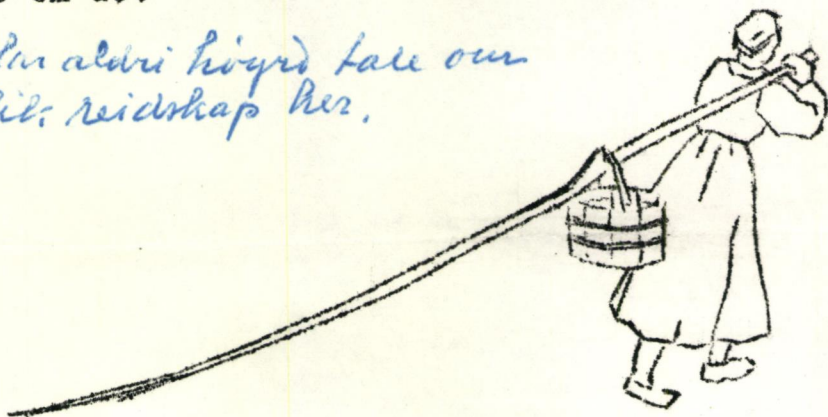 Har aldri høyrd tale om
slik reidskap her.